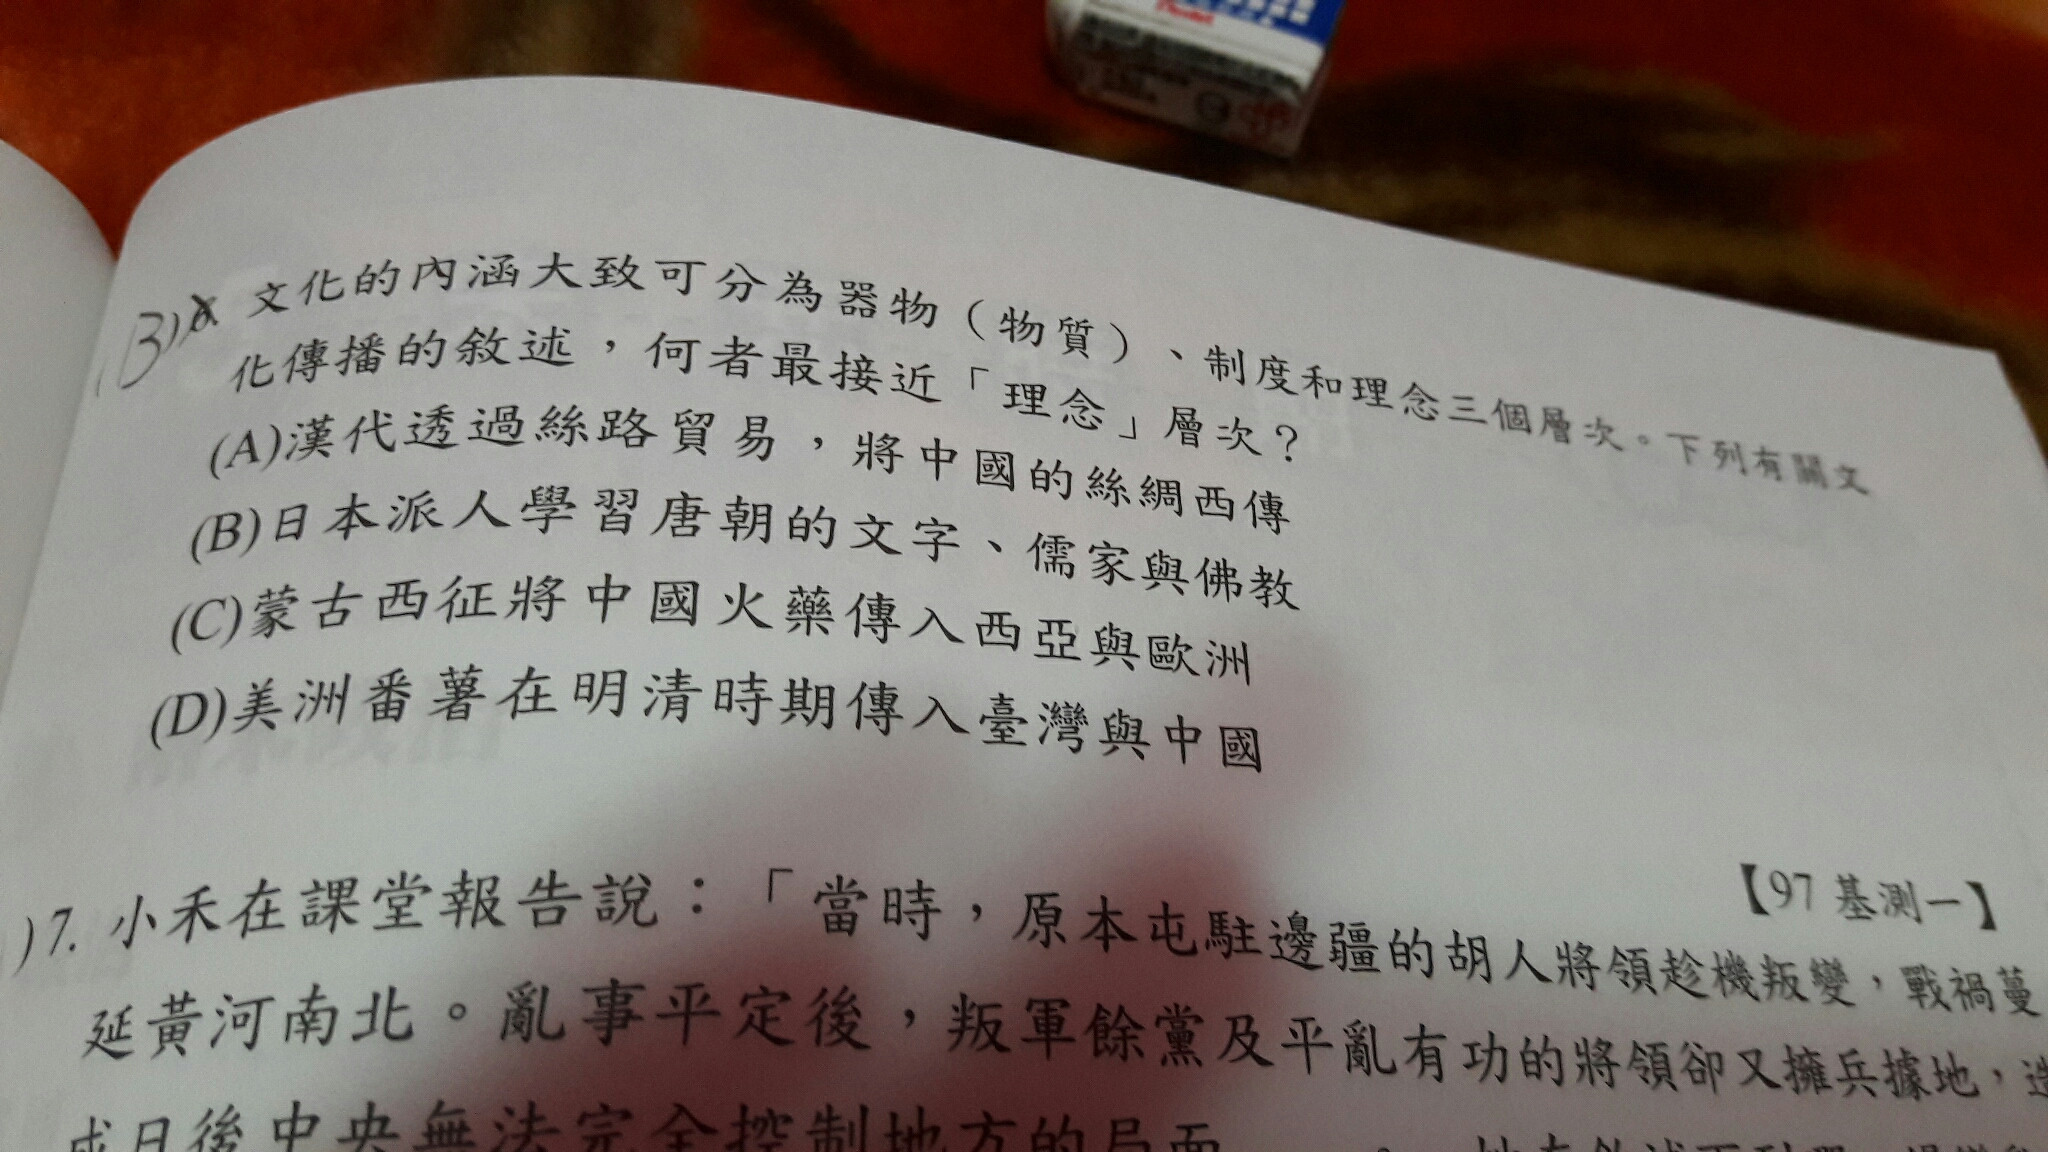 文化的內涵大致可分為器物（物質）、制度和理念三個層次。下列有關文
化傳播的敘述，何者最接近「理念」層次？
(A)漢代透過絲路貿易，將中國的絲綢西傳
(B)日本派人學習唐朝的文字、儒家與佛教
(C)蒙古西征將中國火藥傳入西亞與歐洲
(D)美洲番薯在明清時期傳入臺灣與中國
【97 基測一】
)7. 小禾在課堂報告說：「當時，原本屯駐邊疆的胡人將領趁機叛變，戰禍蔓
延黃河南北。亂事平定後，叛軍餘黨及平亂有功的將領卻又擁兵據地，造
成日後中央無法完全控制地方的局面